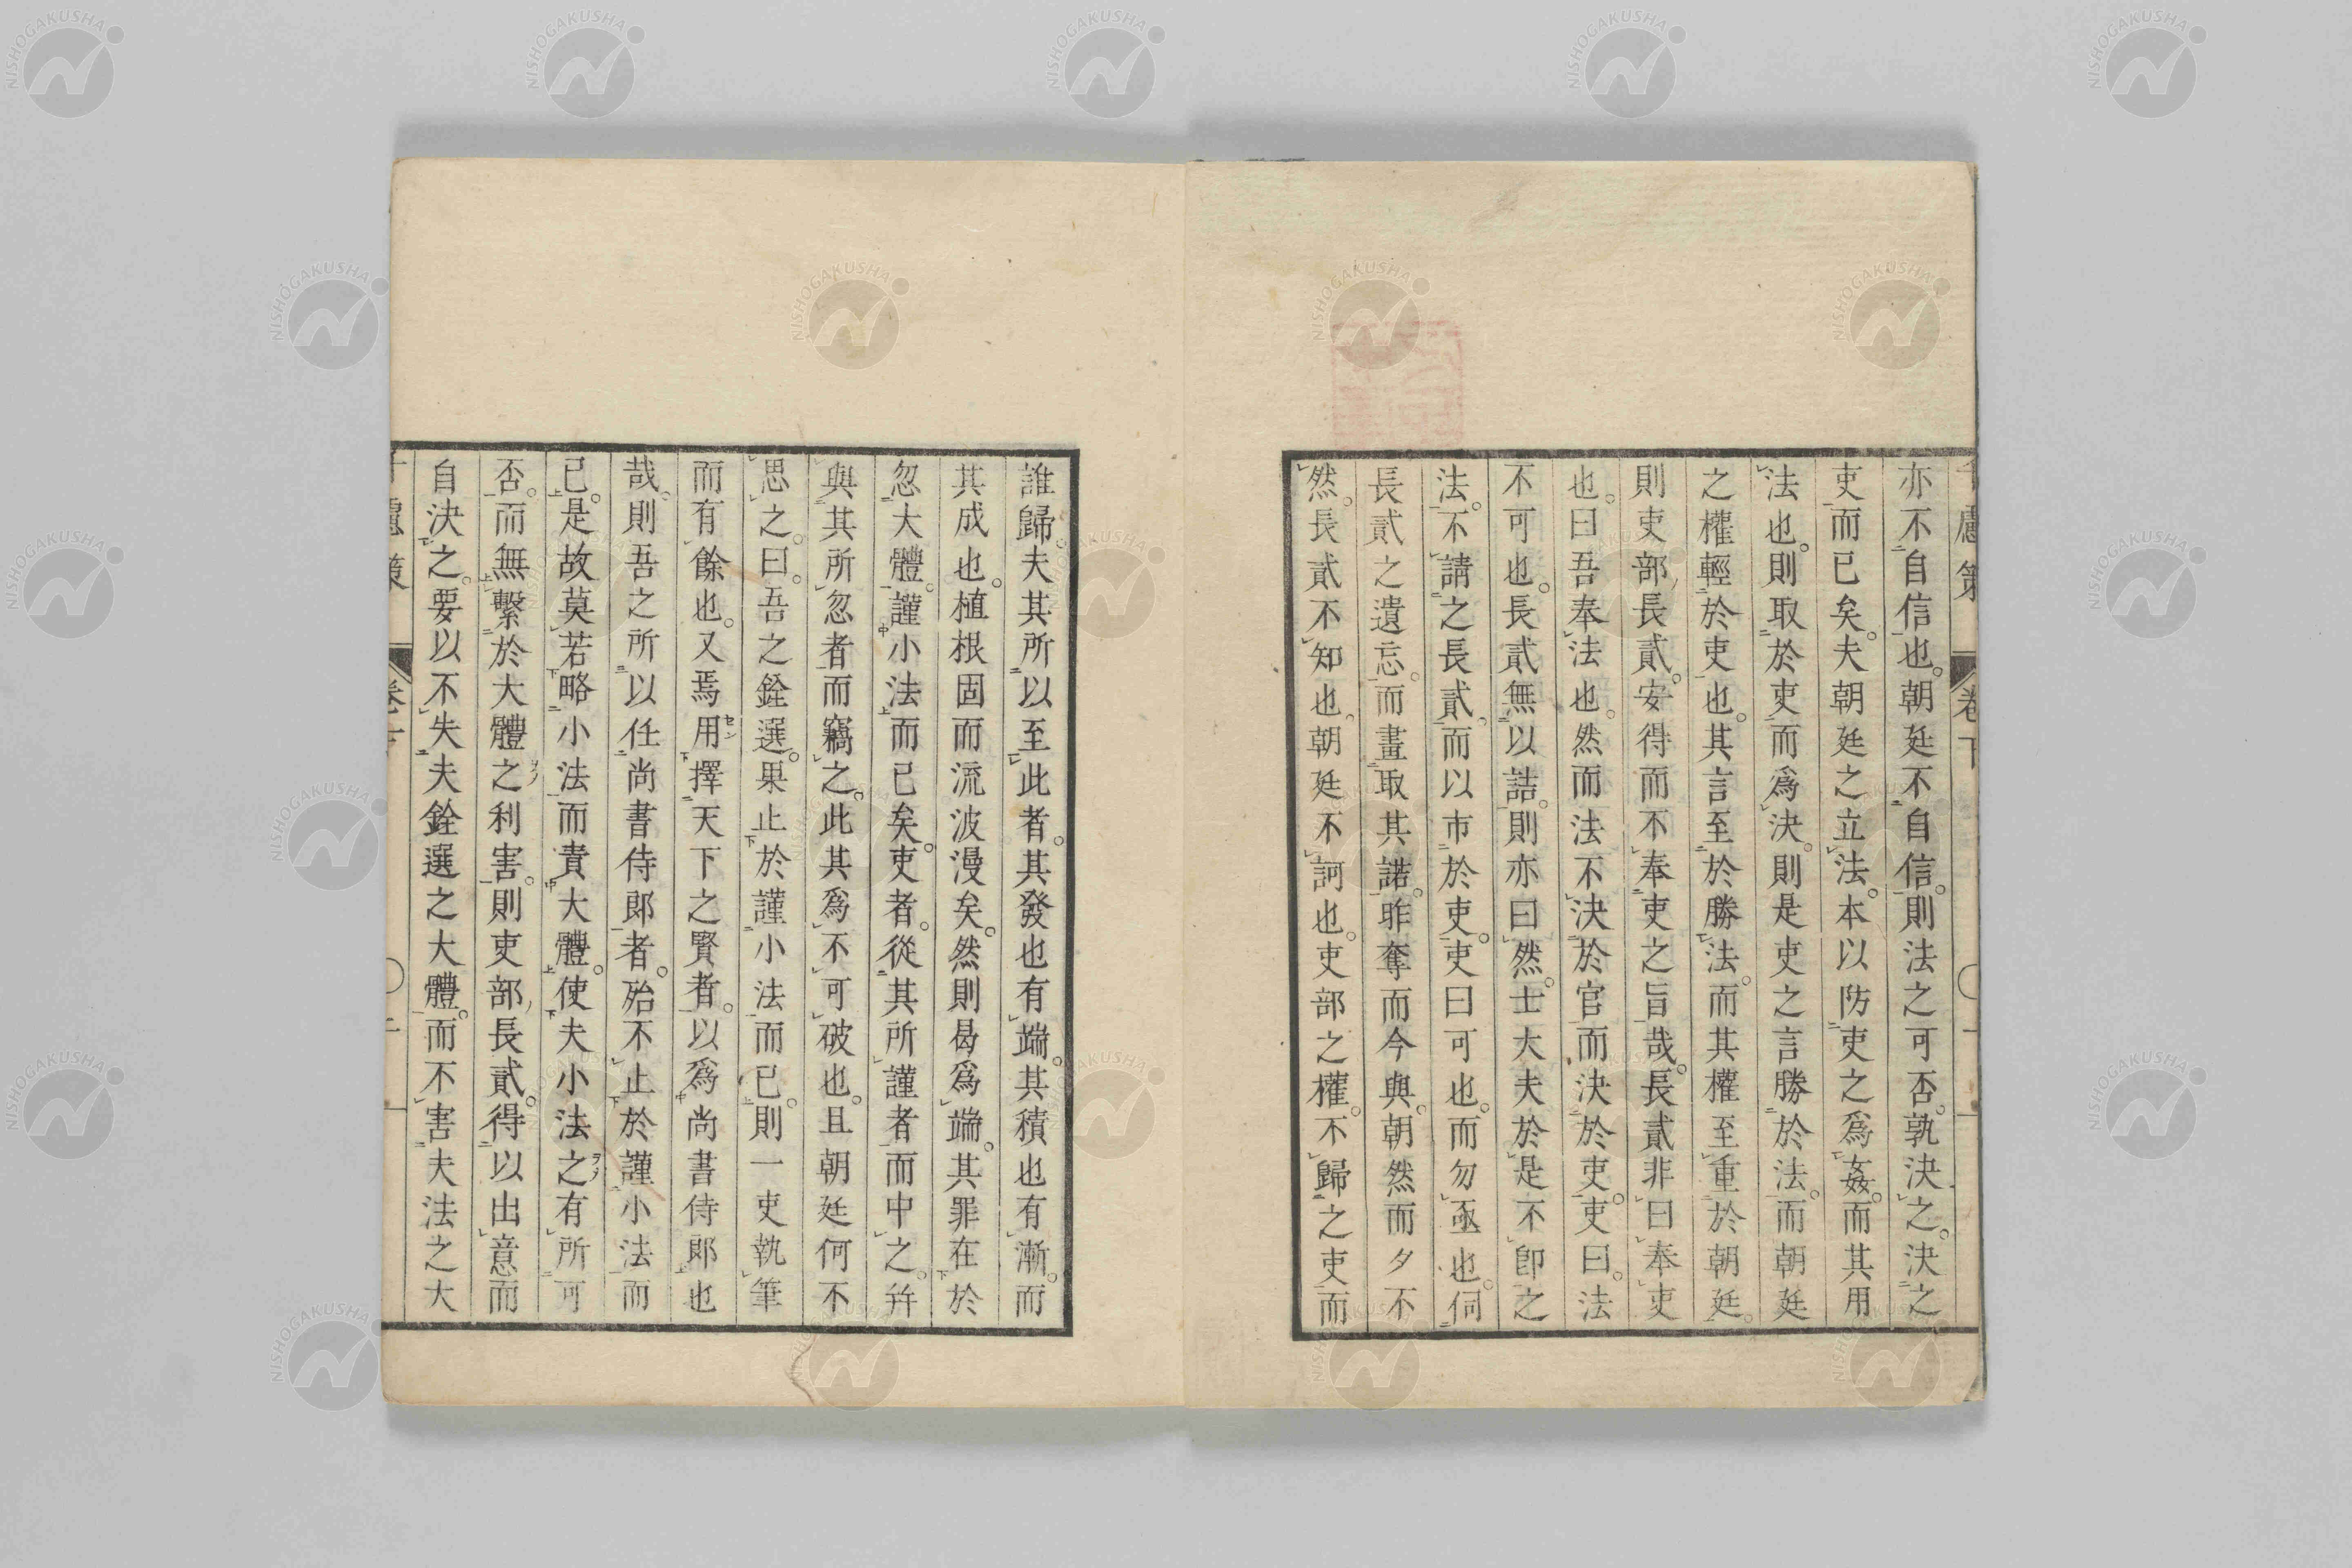 亦不自信也。朝廷不自信。則法之可否。孰決之。決之
吏而已矣。夫朝廷之立法。本以防吏之為姦。而其用
法也。則取於吏而為決。則是吏之言勝於法。而朝廷
之權輕於吏也。其言至於勝法。而其權至重於朝廷。
則吏部長貳。安得而不奉吏之旨哉。長貳非曰奉吏
也。曰吾奉法也。然而法不決於官而決於吏。吏曰。法
不可也。長貳無以詰。則亦曰然。士大夫於是不即之
法。不請之長貳。而以市於吏。吏曰可也。而勿亟也。伺
長貳之遺忘。而畫取其諾。昨奪而今與。朝然而夕不
然。長貳不知也。朝廷不訶也。吏部之權。不歸之吏而
慮策 卷下
誰歸夫其所以至此者。其發也有端。其積也有漸。而
其成也。植根固而流波漫矣。然則曷為端。其罪在於
忽大體。謹小法而已矣。吏者。從其所謹者而中之。并
與其所忽者而竊之。此其為不可破也。且朝廷何不
思之。曰。吾之銓選。果止於謹小法而已。則一吏執筆
而有餘也。又焉用擇天下之賢者。以為尚書侍郎也
哉。則吾之所以任尚書侍郎者。殆不止於謹小法而
已。是故莫若略小法而責大體。使夫小法之有所可
否。而無繫於大體之利害。則吏部長貳。得以出意而
自決之。要以不失夫銓選之大體。而不害夫法之大
慮策
NISHOGAKUSHA